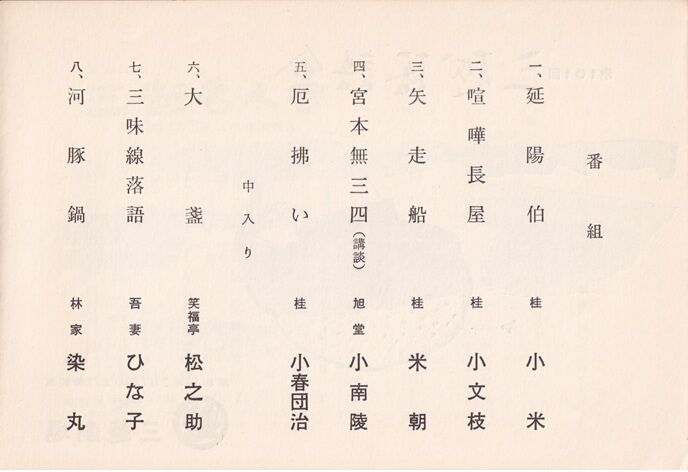 番組
一、延陽伯 桂 小米
二、喧嘩長屋 桂 小文枝
三、矢走船 桂 米朝
四、宮本無三四（講談） 旭堂 小南陵
五、厄拂い 桂 小春団治
中入り
六、大盞 笑福亭 松之助
七、三味線落語 吾妻 ひな子
八、河豚鍋 林家 染丸